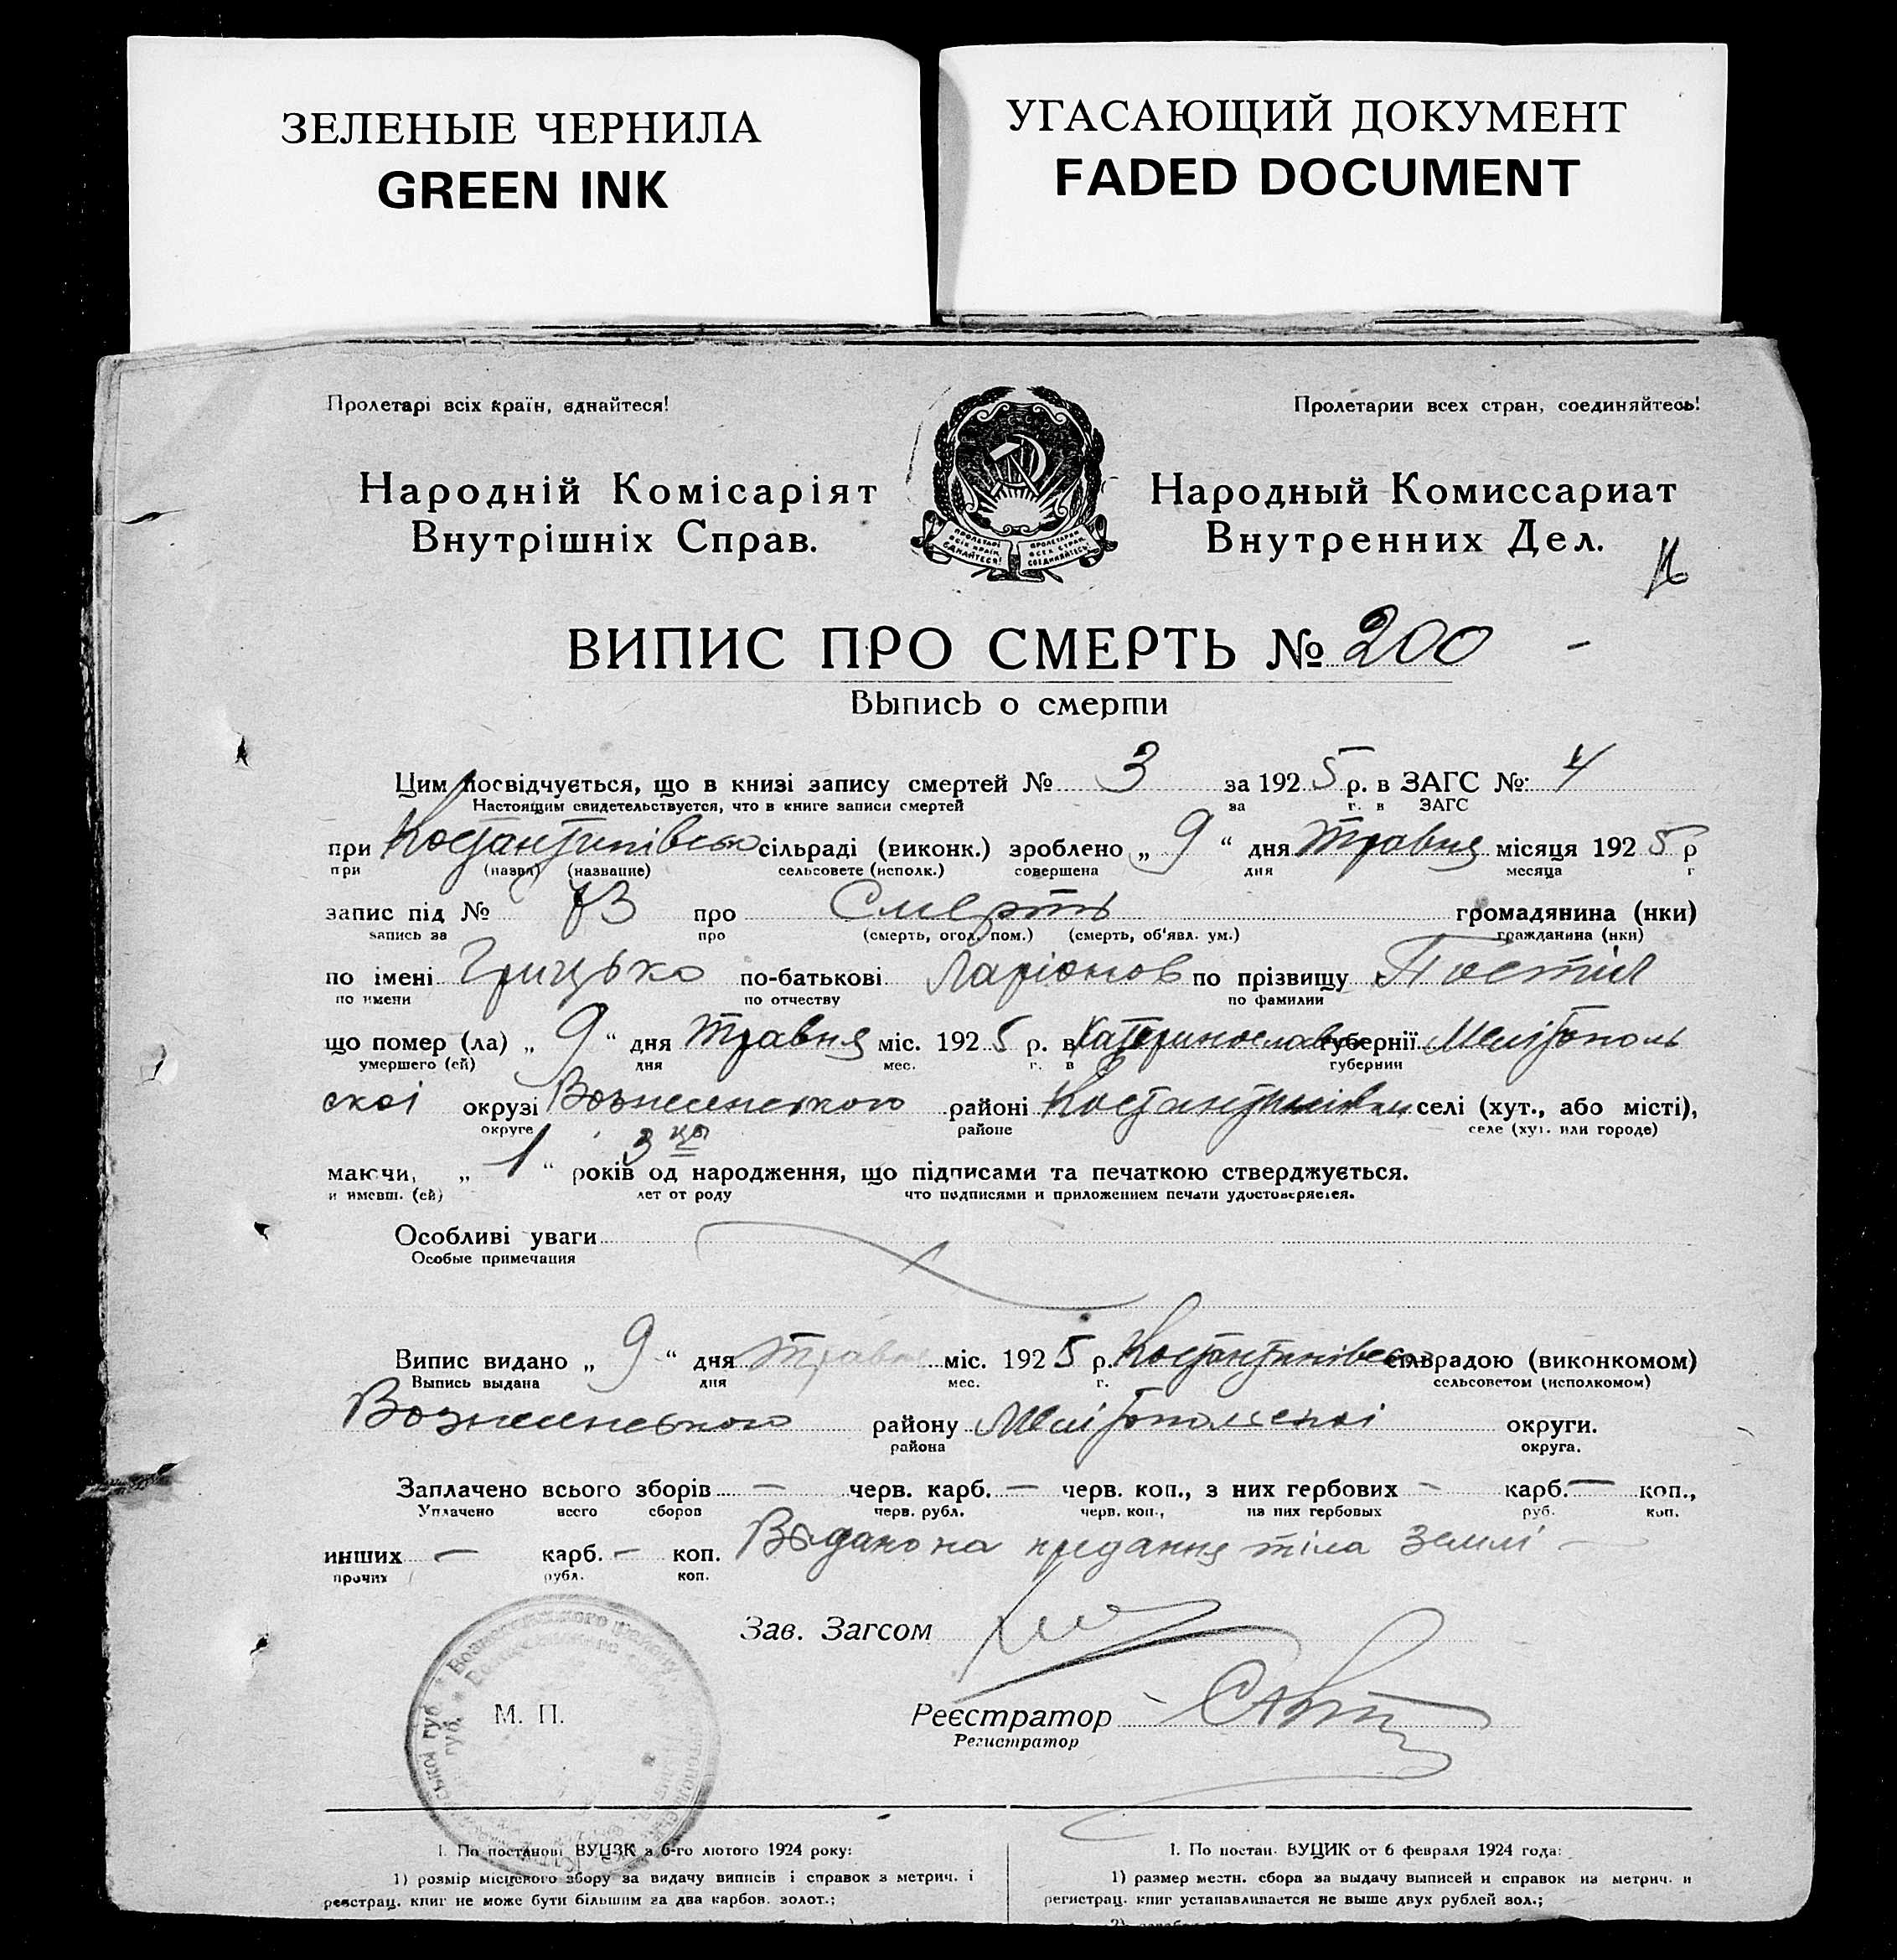 ЗЕЛЕНЫЕ ЧЕРНИЛА
GREEN INK
УГАСАЮЩИЙ ДОКУМЕНТ
FADED DOCUMENT
Пролетарі всіх країн, єднайтеся!
Пролетарии всех стран, соединяйтесь!
Народній Комісаріят
Внутрішніх Справ.
Народный Комиссариат
Внутренних Дел.
ПРОЛЕТАРІ ВСІХ КРАЇН ЄДНАЙТЕСЯ!
ПРОЛЕТАРИИ ВСЕХ СТРАН СОЕДИНЯЙТЕСЬ!
ВИПИС ПРО СМЕРТЬ № 200
Выпись о смерти
Цим посвідчується, що в книзі запису смертей № 3 за 1925 р. в ЗАГС №: 4
Настоящим свидетельствуется, что в книге записи смертей за г. в ЗАГС
при Костантинівсько сільраді (виконк.) зроблено „ 9 “ дня Травня місяця 1925 р
при (назва) (название) сельсовете (исполк.) совершена дня месяца г
запис під № 73 про Смерть громадянина (нки)
запись за про (смерть, огол. пом.) (смерть, об'явл. ум.) гражданина (нки)
по імені Грицько по-батькові Ларіонов по прізвищу Постіл
по имени по отчеству по фамилии
що помер (ла) „ 9 “ дня Травня міс. 1925 р. в Катеринослав губернії Мелітополь
умершего (ей) дня мес. г. в губернии
скоі окрузі Вознесенського районі Костантинівки селі (хут., або місті),
округе районе селе (хут. или городе)
маючи, „ 1 “ 3 років од народження, що підписами та печаткою стверджується.
и имевш. (ей) лет от роду что подписями и приложением печати удостоверяется.
Особливі уваги
Особые примечания
Випис видано „ 9 “ дня Травня міс. 1925 р. Костантинівсько сільрадою (виконкомом)
Выпись выдана дня мес. г. сельсоветом (исполкомом)
Вознесенського району Мелітопольскоі округи.
района округа.
Заплачено всього зборів — черв. карб. — черв. коп., з них гербових - карб. — коп.,
Уплачено всего сборов черв. рубл. черв. коп., из них гербовых руб. коп.
инших — карб. — коп. Видано на придання тіла землі
прочих рубл. коп.
Зав. Загсом
М. П.
Реєстратор
Регистратор
Вознесенського району
I. По постанові ВУЦВК з 6-го лютого 1924 року:
1) розмір місцевого збору за видачу виписів і справок з метрич. і
реєстрац. книг не може бути більшим за два карбов. золот.;
I. По постан. ВУЦИК от 6 февраля 1924 года:
1) размер местн. сбора за выдачу выписей и справок из метрич. и
регистрац. книг устанавливается не выше двух рублей зол.;